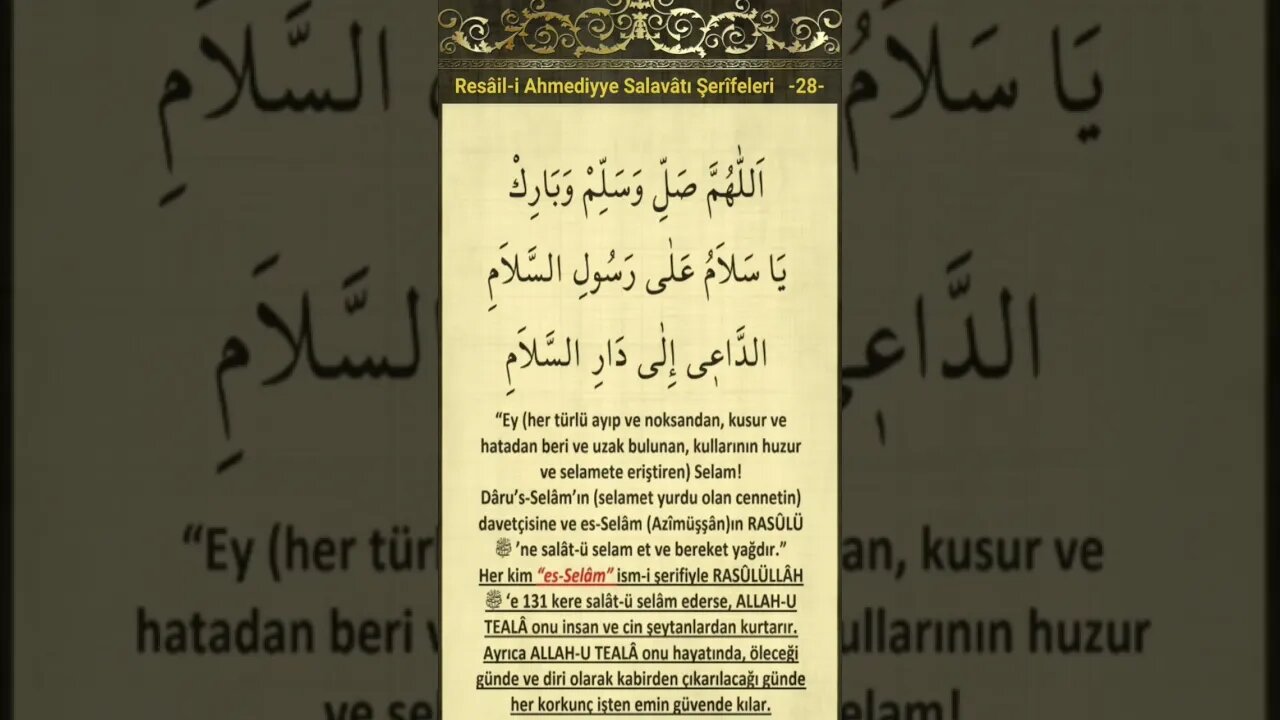 Resâil-i Ahmediyye Salavâtı Şerîfeleri -28-
اَللّٰهُمَّ صَلِّ وَسَلِّمْ وَبَارِكْ
يَا سَلاَمُ عَلٰى رَسُولِ السَّلاَمِ
الدَّاعٖى إِلٰى دَارِ السَّلاَمِ
“Ey (her türlü ayıp ve noksandan, kusur ve
hatadan beri ve uzak bulunan, kullarının huzur
ve selamete eriştiren) Selam!
Dâru’s-Selâm’ın (selamet yurdu olan cennetin)
davetçisine ve es-Selâm (Azîmüşşân)ın RASÛLÜ
ﷺ ’ne salât-ü selam et ve bereket yağdır.”
Her kim “es-Selâm” ism-i şerifiyle RASÛLÜLLÂH
ﷺ ‘e 131 kere salât-ü selâm ederse, ALLAH-U
TEALÂ onu insan ve cin şeytanlardan kurtarır.
Ayrıca ALLAH-U TEALÂ onu hayatında, öleceği
günde ve diri olarak kabirden çıkarılacağı günde
her korkunç işten emin güvende kılar.